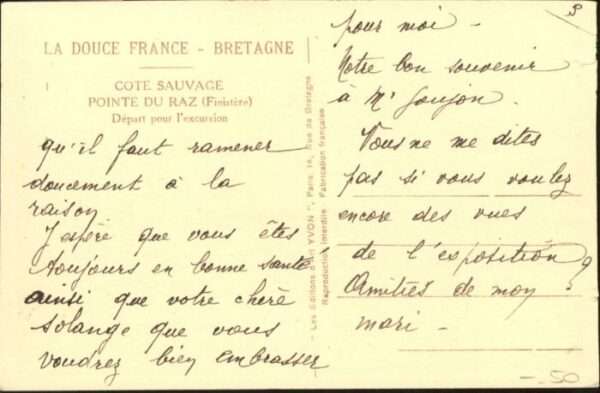 LA DOUCE FRANCE - BRETAGNE
COTE SAUVAGE
POINTE DU RAZ (Finistère)
Départ pour l'excursion
qu'il faut ramener
doucement à la
raison
J'espère que vous êtes
toujours en bonne santé
ainsi que votre chère
Solange que vous
voudrez bien embrasser
- Les Editions d'Art YVON", Paris, 15, Rue de Bretagne
Reproduction interdite Fabrication française
pour moi -
Notre bon souvenir
à Mr Goujon.
Vous ne me dites
pas si vous voulez
encore des vues
de l'exposition?
Amitiés de mon
mari -
-.50